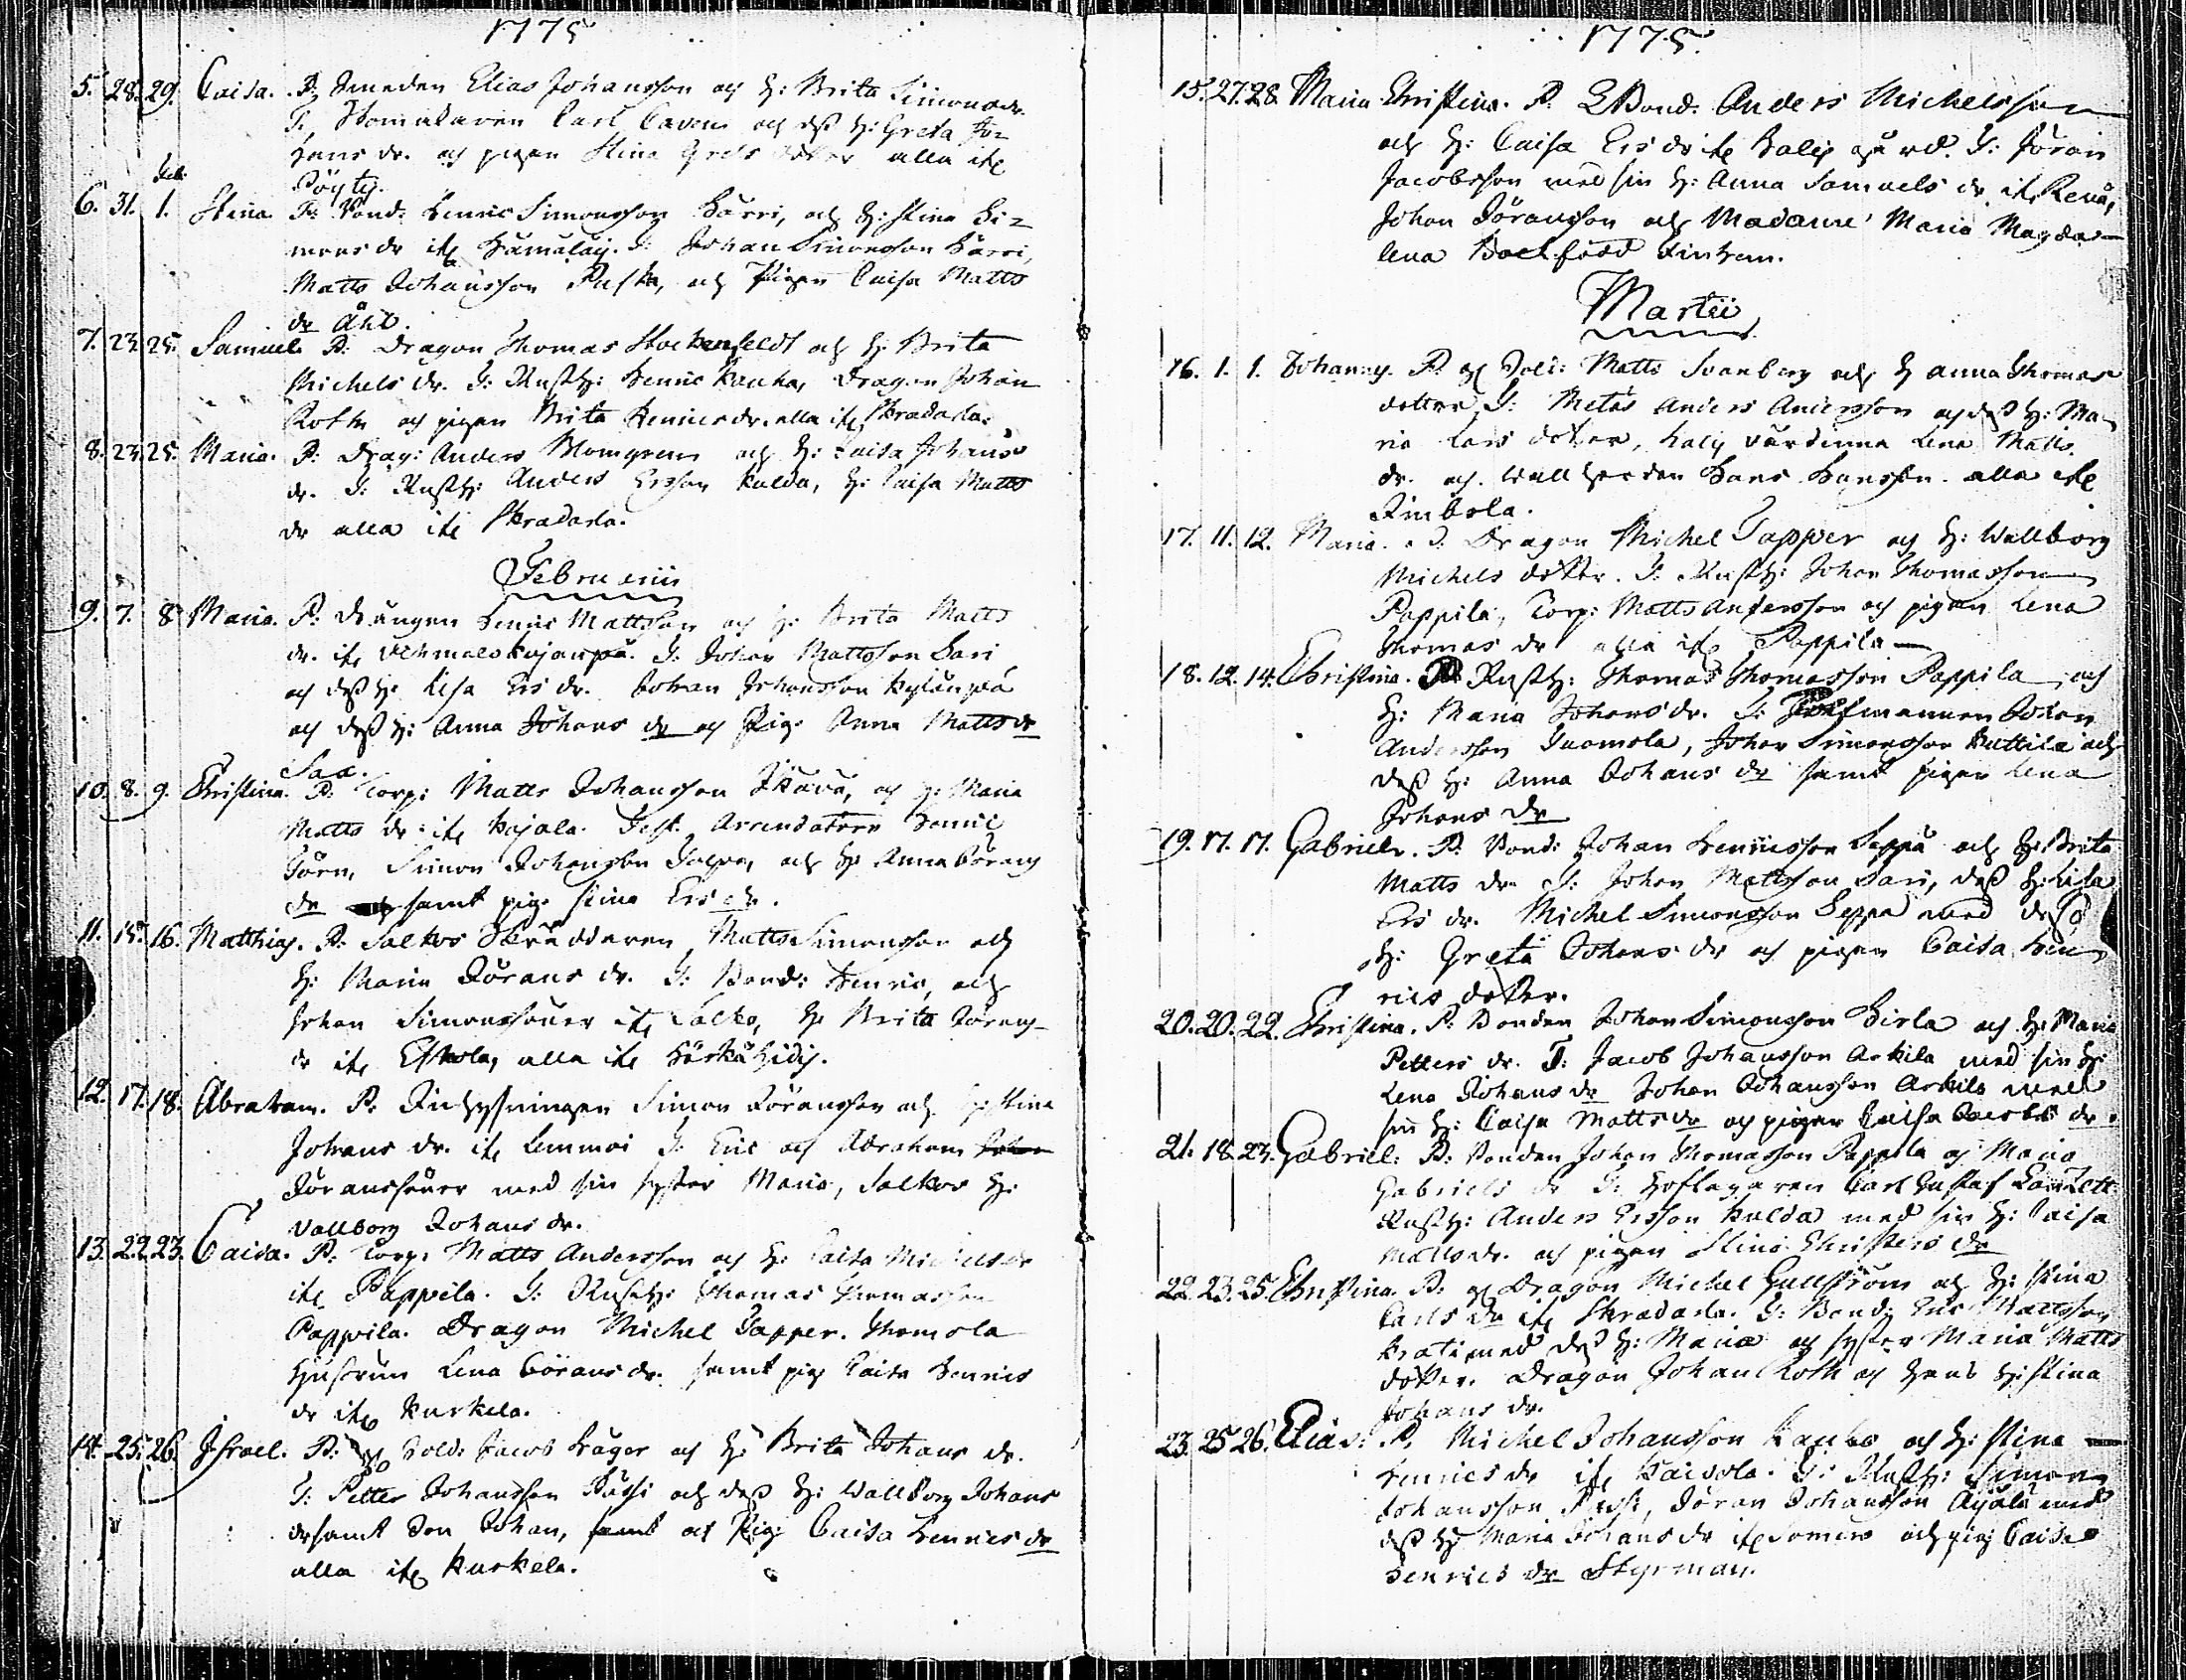 1775
5. 28. 29. Caisa. P. Smeden Elias Johansson och H: Brita Simonsdr.
T. Skomakaren Carl Caven och dess H: Greta Jo-
hans dr. och pigan Stina Grels dotter alla ifr
Pöytis.
Feb.
6. 31. 1. Stina P: Bond: Henric Simonsson Härri, och H: Stina Si-
mons dr ifr Hämäläis. T: Johan Simonsson Härri,
Matts Johansson Pusta, och Pigan Caisa Matts
dr
7. 23. 25. Samuel P: Dragon Thomas Stockenfeldt och H: Brita
Michels dr. T: Rusth: Henric Kauka, Dragon Johan
Roth och pigan Brita Henricsdr. alla ifr Skradarla.
8. 23. 25. Maria. P: Drag: Anders Blomgren och H: Caisa Johans
dr. T: Rusth: Anders Ersson Kulda, H: Caisa Matts
dr alla ifr Skradarla.
Februarii
9. 7. 8 Maria. P: Drängen Henric Mattsson och H: Brita Matts
dr. ifr T: Johan Mattsson Sari
och dess H: Lisa Ers dr. Johan Johansson
och dess H: Anna Johans dr och Pig: Anna Mattsdr
Saa.
10. 8. 9. Christina. P. Torp: Matts Johansson och H: Maria
Matts dr ifr Kojala. Test. Arrendatorn Henric
Törn, Simon Johansson och H: Anna Görans
dr samt pig: Stina Ers dr.
11. 15. 16. Matthias. P. Salkos Skräddaren Matts Simonsson och
H: Maria Görans dr. T: Bond: Henric, och
Johan Simonssöner ifr Salko, H: Brita Görans
dr ifr Eskola, alla ifr Härkähidis.
12. 17. 18. Abraham. P. Inhysningen Simon Göransson och H: Stina
Johans dr. ifr Lemmoi T: Eric och Abraham
Göranssöner med sin syster Maria, Salkos H:
Vallborg Johans dr.
13. 22. 23. Caisa. P: Torp: Matts Andersson och H: Caisa Michelsdr
ifr Pappila. T: Rusth: Thomas Thomasson
Pappila. Dragon Michel Tapper. Thomola
hustrun Lena Görans dr. samt pig Caisa Henrics
dr ifr Kurkela.
14. 25. 26. Israel. P: Sold: Jacob Kruger och H: Brita Johans dr.
T: Petter Johansson Pässi och dess H: Wallborg Johans
dr samt Son Johan, samt och Pig: Caisa Henrics dr
alla ifr Kurkela.
1775.
15. 27. 28. Maria Christina. P. Bond. Anders Michelsson
och H: Caisa Ers dr ifr T: Jöran
Jacobsson med sin H: Anna Samuels dr ifr
Johan Göransson och Madame Maria Magda-
lena
Martii
16. 1. 1. Johannes. P. Sold: Matts Svanberg och H Anna Thomas
dotter T: Anders Andersson och dess H: Ma
ria Lars dotter, värdinna Lena Matts
dr. och Wallherden Hans Hansson alla ifr
17. 11. 12. Maria. P. Dragon Michel Tapper och H: Wallborg
Michels dotter. T: Rusth: Johan Thomasson
Pappila, Torp: Matts Andersson och pigan Lena
Thomas dr alla ifr Pappila
18. 12. 14. Christina. P. Rusth: Thomas Thomasson Pappila och
H: Maria Johans dr. T: Johan
Andersson Juomola, Johan Simonsson Kuttila och
dess H: Anna Johans dr samt pigan Lena
Johans dr
19. 17. 17. Gabriel. P. Bond: Johan Henricsson Seppä och H: Brita
Matts dr. T: Johan Mattsson Sari, dess H: Lisa
Ers dr. Michel Simonsson Seppä med dess
H: Greta Johans dr och pigan Caisa Hen
rics dotter.
20. 20. 22. Christina. P. Bonden Johan Simonsson Hirla och H: Maria
Petters dr. T: Jacob Johansson Arkila med sin H:
Lena Johans dr Johan Johansson Arkila med
sin H: Caisa Matts dr och pigan Caisa Jacobs dr.
21. 18. 23. Gabriel: P: Bonden Johan Thomasson Pappila och Maria
Gabriels dr T: Hofslagaren Carl Gustaf
Rusth: Anders Ersson Kulda med sin H: Caisa
Matts dr. och pigan Stina Christers dr
22. 23. 25. Christina. P. Dragon Michel Gullström och H: Stina
Carls dr ifr Skradarla. T: Bond: Eric Mattsson
Krati med dess H: Maria och syster Maria Matts
dotter. Dragon Johan Roth och hans H: Stina
Johans dr.
23. 25. 26. Elias: P. Michel Johansson Kauko och H: Stina
Henrics dr ifr Kaivola. T: Rusth: Simon
Johansson Göran Johansson Äyälä med
dess H: Maria Johans dr ifr Somero och pig Caisa
Henrics dr Styrman.